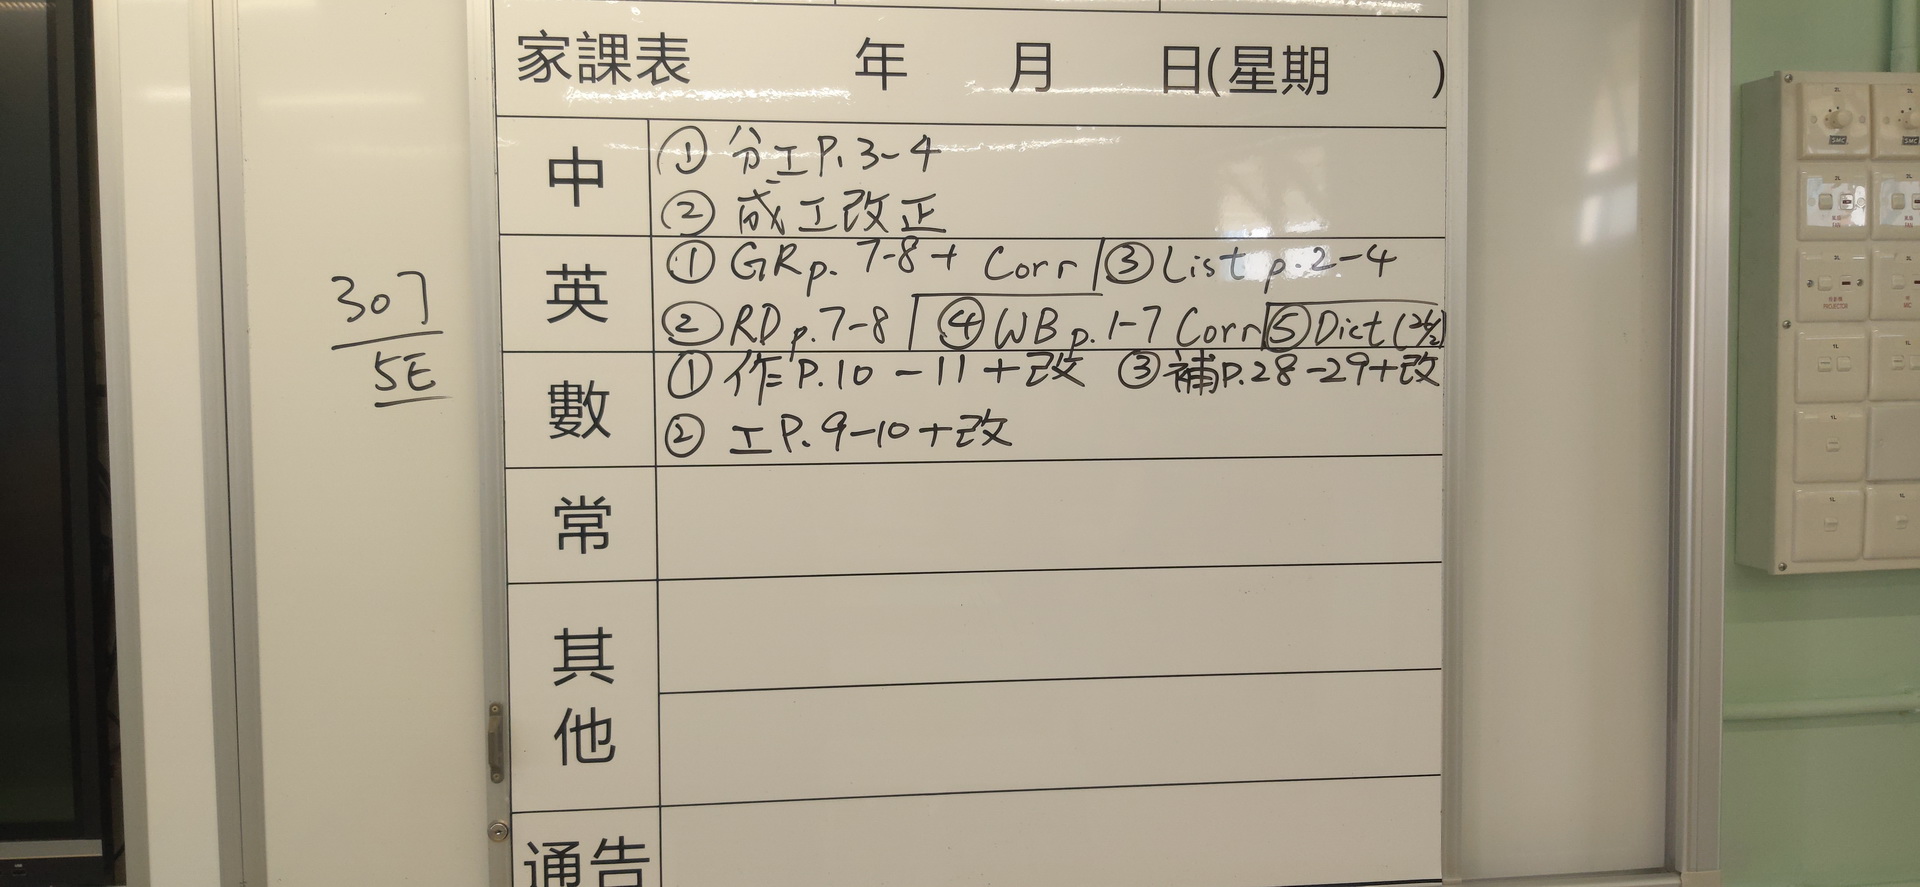 家課表 年 月 日(星期 )
中
① 分工P.3-4
② 成工改正
英
① GR p. 7-8 + Corr ③ List p.2-4
② RD p.7-8 ④ WB p.1-7 Corr ⑤ Dict (26/2)
數
① 作P.10-11+改 ③ 補P.28-29+改
② 工P.9-10+改
常
其他
通告
307
5E